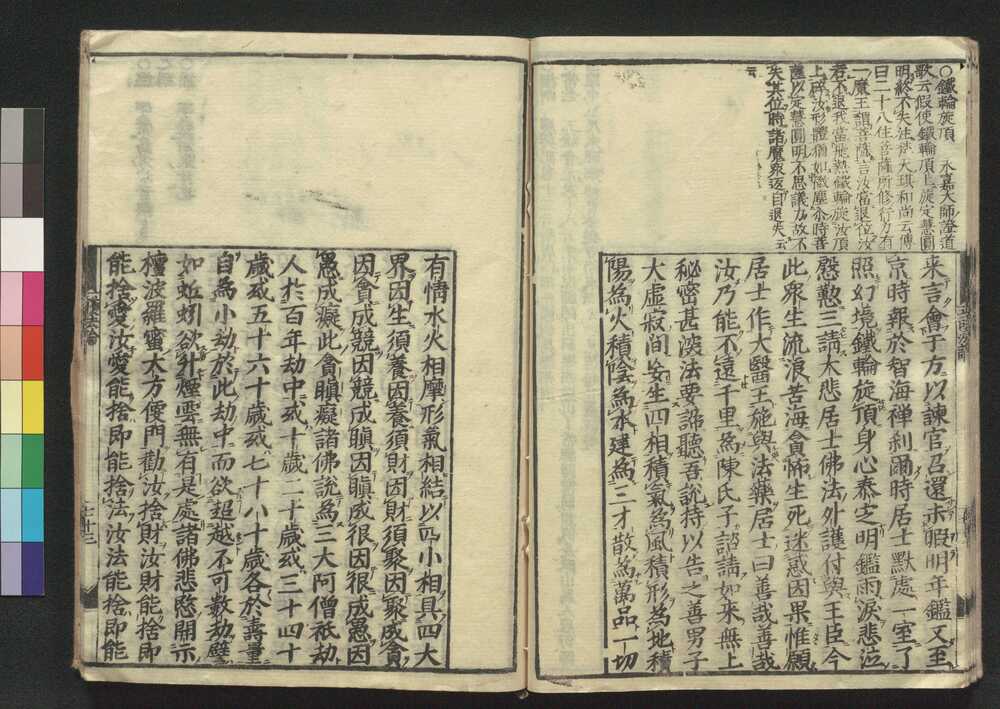 ○鐵輪旋頂 永嘉大師證道
歌云假使鐵輪頂上旋定慧圓
明終不失注大琪和尚云傳
曰二十八住菩薩所修行力有
一魔王語菩薩言汝當退位汝
若不退我當飛熱鐵輪旋汝頂
上碎汝形體猶如微塵尒時菩
薩以定慧圓明不思議力故不
失其位時諸魔衆返自退失云
云
来言會于方以諫官召還未暇明年鑑又至
京時報於智海禅刹爾時居士默處一室了
照幻境鐵輪旋頂身心泰定明鑑雨涙悲泣
慇懃三請大悲居士佛法外護付與王臣今
此衆生流浪苦海貪怖生死迷惑因果惟願
居士作大醫王施與法藥居士曰善哉善哉
汝乃能不遠千里爲陳氏子諮請如來無上
秘密甚深法要諦聽吾説持以告之善男子
大虚寂間妄生四相積氣爲風積形爲地積
陽爲火積陰爲水建爲三才散爲萬品一切
有情水火相摩形氣相結以四小相具四大
界因生須養因養須財因財須聚因聚成貪
因貪成競因競成瞋因瞋成很因很成愚因
愚成癡此貪瞋癡諸佛説爲三大阿僧祇劫
人於百年劫中或十歳二十歳或三十四十
歳或五十六十歳或七十八十歳各於壽量
自爲小劫於此劫中而欲超越不可數劫譬
如蚯蚓欲升煙雲無有是處諸佛悲愍開示
檀波羅蜜大方便門勸汝捨財汝財能捨即
能捨愛汝愛能捨即能捨法汝法能捨即能